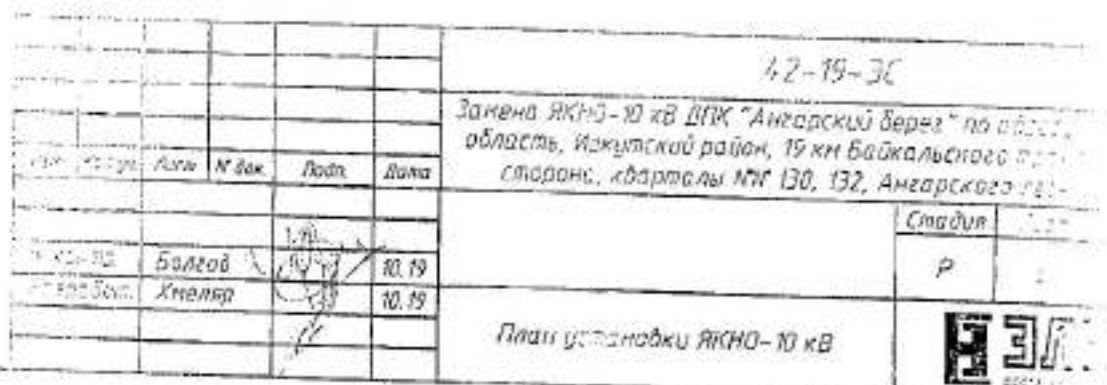 42-19-ЭС
Замена ЯКНО-10 кВ ДПК "Ангарский берег" по
область, Иркутский район, 19 км Байкальского
сторона, кварталы №№ 130, 132, Ангарского
Лист № док. Подп. Дата
Стадия
Болгов 10.19 Р
Хмеляр 10.19
План установки ЯКНО-10 кВ